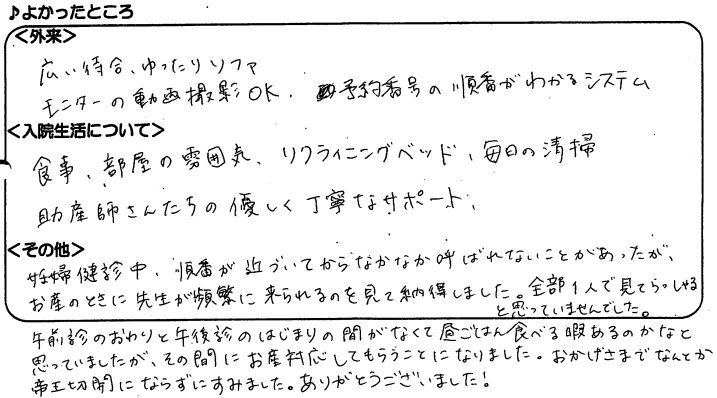 ♪よかったところ
<外来>
広い待合、ゆったりソファ
モニターの動画撮影OK、予約番号の順番がわかるシステム
<入院生活について>
食事、部屋の雰囲気、リクライニングベッド、毎日の清掃
助産師さんたちの優しく丁寧なサポート、
<その他>
妊婦健診中、順番が近づいてからなかなか呼ばれないことがあったが、
お産のときに先生が頻繁に来られるのを見て納得しました。全部1人で見てらっしゃる
と思っていませんでした。
午前診のおわりと午後診のはじまりの間がなくて昼ごはん食べる暇あるのかなと
思っていましたが、その間にお産対応してもらうことになりました。おかげさまでなんとか
帝王切開にならずにすみました。ありがとうございました!